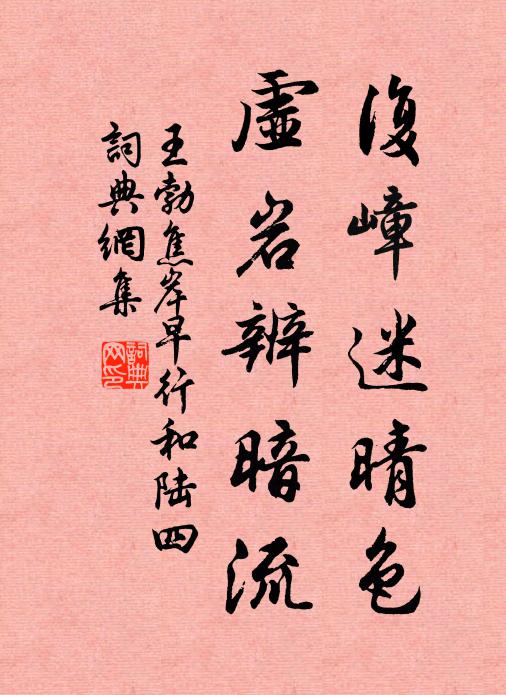 復嶂迷晴色
虛岩辨暗流
王勃焦岸早行和陆四
詞典網集
詞典网印